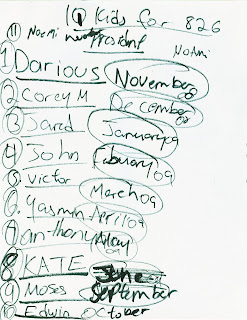 10 Kids for 826
11 Noemi President Noemi
1 Darious November 08
2 Corey M December 08
3 Jared January 09
4 John Febuary 09
5. Victor March 09
6. Yasmin April 09
7 anthony May 09
8 KATE June
9 Moses September
10 Edwin October